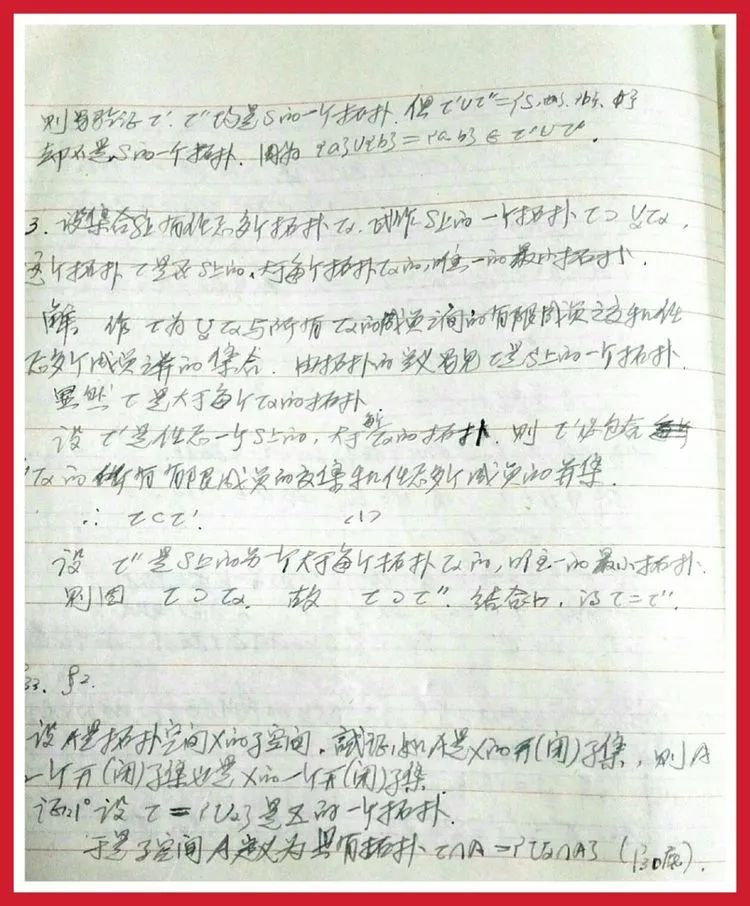 则易验证 τ′、τ″均是S的一个拓扑. 但 τ′∪τ″={S,{a},{b},ϕ}
却不是S的一个拓扑. 因为 {a}∪{b}={a,b} ∈ τ′∪τ″.
3. 设集合S上有任意多个拓扑 τα. 试作S上的一个拓扑 τ ⊃ ∪τα,
这个拓扑 τ是S上的,大于每个拓扑τα的,唯一的最小拓扑.
解. 作 τ为 ∪τα与所有 τα的成员之间的有限成员之交和任
意多个成员之并的集合. 由拓扑的定义易见 τ是S上的一个拓扑.
显然 τ是大于每个τα的拓扑
设 τ′是任意一个S上的,大于每个τα的拓扑. 则 τ′必包含
τα的所有有限成员的交集和任意多个成员的并集.
∴ τ⊂τ′. (1)
设 τ″是S上的另一个大于每个拓扑τα的,唯一的最小拓扑.
则因 τ⊃τα. 故 τ⊃τ″. 结合(1), 得τ=τ″.
33. §2.
设A是拓扑空间X的子空间. 试证,如A是X的开(闭)子集, 则A
一个开(闭)子集也是X的一个开(闭)子集.
证 1° 设 τ={Uα}是X的一个拓扑.
于是子空间A定义为具有拓扑 τ∩A={Uα∩A} (P30底).